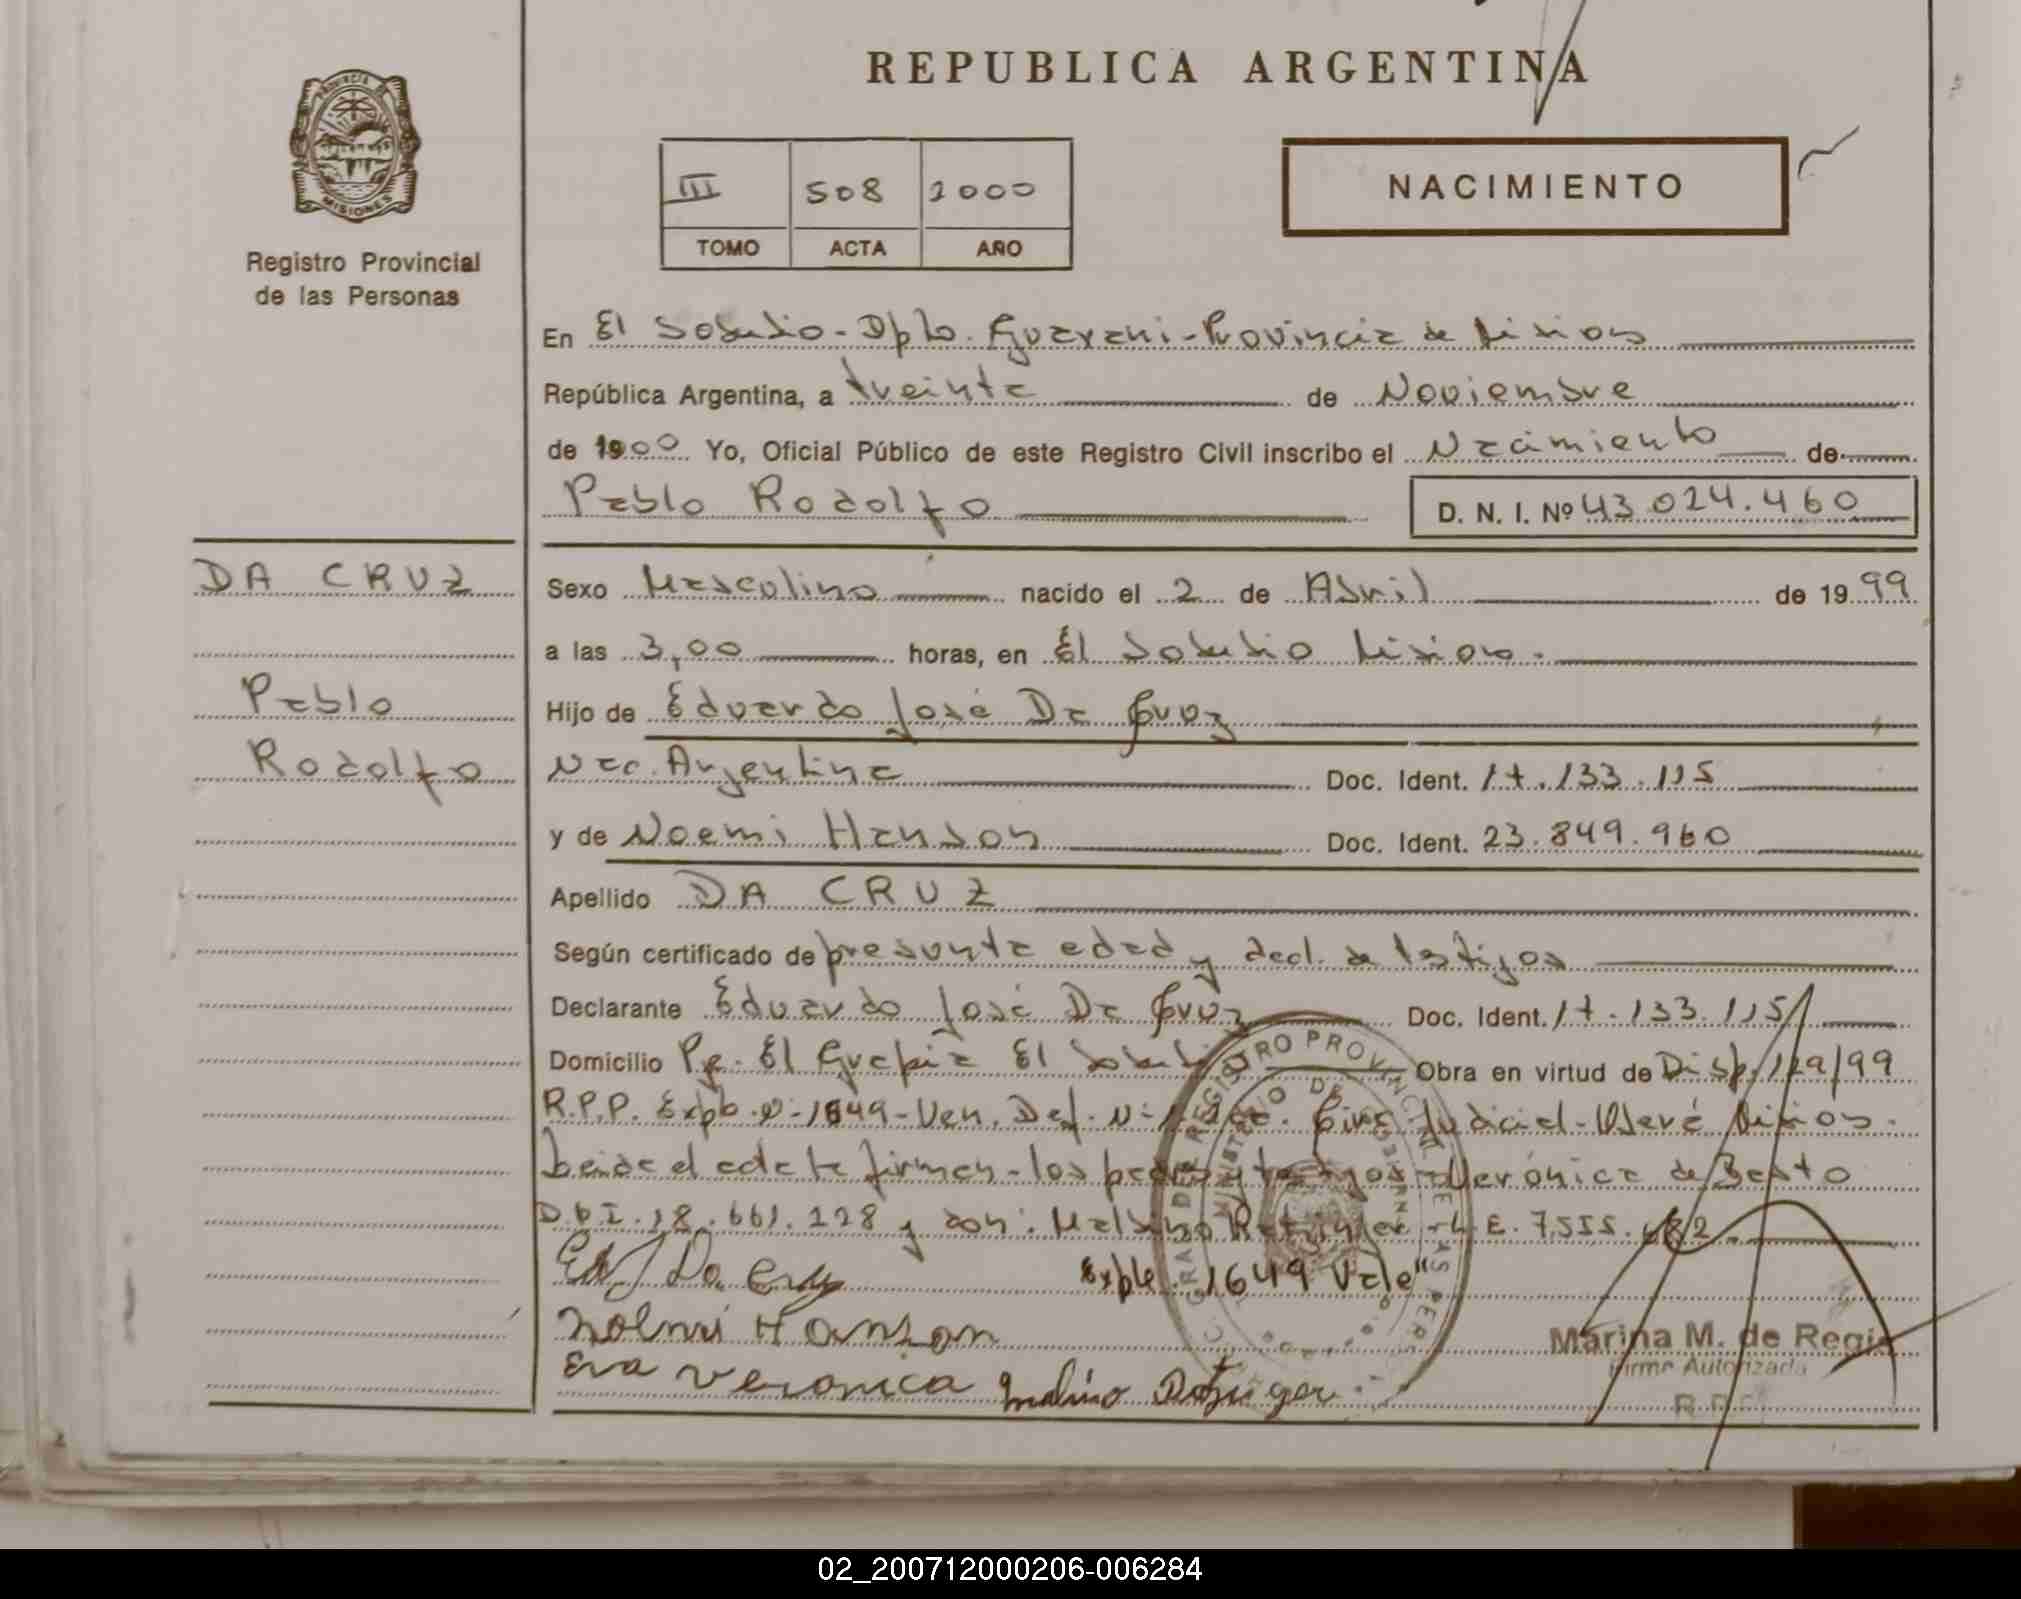 REPUBLICA ARGENTINA
PROVINCIA DE
MISIONES
Registro Provincial
de las Personas
III 508 2000
TOMO ACTA AÑO
NACIMIENTO
En El Soberbio - Dpto. Guarani - Provincia de Misiones
República Argentina, a treinta de Noviembre
de 1900 Yo, Oficial Público de este Registro Civil inscribo el Nacimiento de
Pablo Rodolfo D. N. I. Nº 43 024.460
DA CRUZ
Pablo
Rodolfo
Sexo Masculino nacido el 2 de Abril de 1999
a las 3,00 horas, en El Soberbio Misiones.
Hijo de Eduardo José Da Cruz
Nac. Argentina Doc. Ident. 17.133.115
y de Noemi Hanson Doc. Ident. 23.849.960
Apellido DA CRUZ
Según certificado de presunta edad y decl. de testigos
Declarante Eduardo José Da Cruz Doc. Ident. 17.133.115
Domicilio El Obra en virtud de Disp. 129/99
R.P.P. Expte. Nº 1649 - Judicial - Oberá Misiones.
Leida el acta la firman - los padres y testigos Verónica de
D.N.I. 18.661.128 y don: L.E. 7.555.682
Expte. 1649 Vale"
Ed J Da Cruz
Noemi Hanson
Eva Veronica
REGISTRO PROVINCIAL DE LAS PER
MINISTERIO DE GOBIERNO
Marina M. de Regis
Firma Autorizada
R.P.P.
02_200712000206-006284